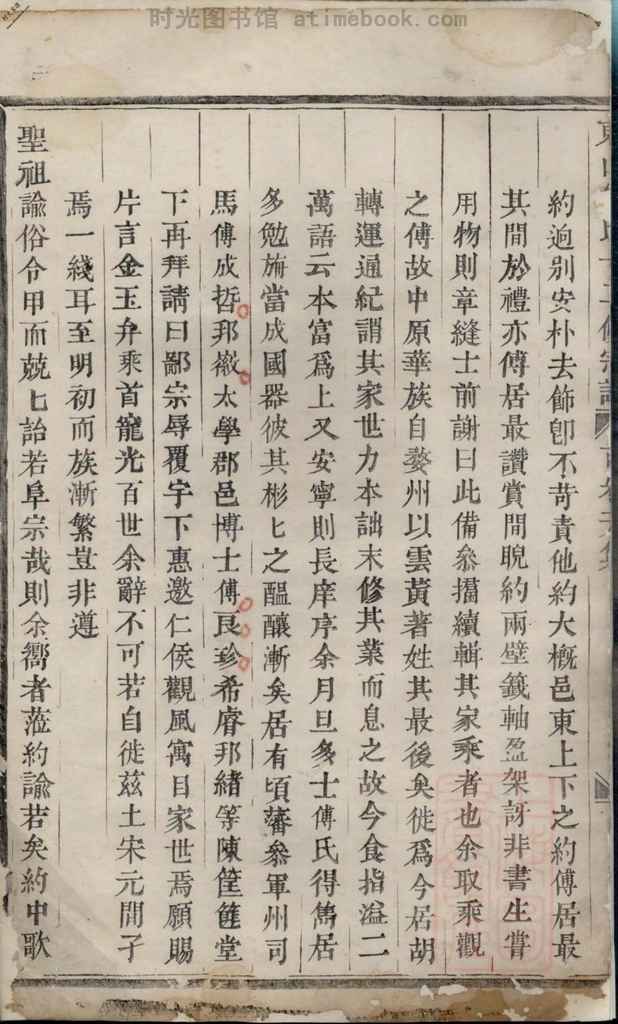 时光图书馆 atimebook.com
約逈别安朴去飾卽不苛責他約大概邑東上下之約傅居最
其間於禮亦傅居最讚賞間睨約兩壁籤軸盈架訝非書生嘗
用物則章縫士前謝曰此備叅攟續輯其家乘者也余取乘觀
之傅故中原華族自婺州以雲黃著姓其最後矣徙爲今居胡
轉運通紀謂其家世力本詘末修其業而息之故今食指溢二
萬語云本富爲上又安寧則長庠序余月旦多士傅氏得雋居
多勉旃當成國器彼其彬匕之醞釀漸矣居有頃藩叅軍州司
馬傅成哲邦嶶太學郡邑博士傅良珍希睿邦緒等陳筐篚堂
下再拜請曰鄙宗辱覆宇下惠邀仁侯觀風寓目家世焉願賜
片言金玉弁乘首寵光百世余辭不可若自徙茲土宋元間子
焉一綫耳至明初而族漸繁豈非遵
聖祖諭俗令甲而兢匕詒若阜宗哉則余嚮者蒞約諭若矣約中歌